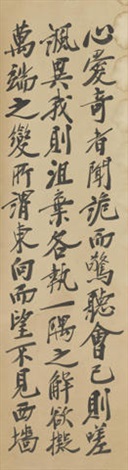 心愛奇者聞詭而驚聽會己則嗟
諷異我則沮棄各執一隅之解欲擬
萬端之變所謂東向而望不見西墻